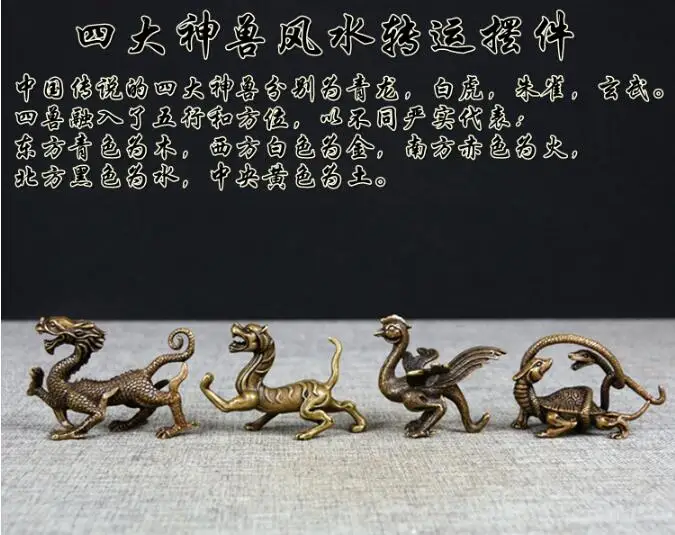 四大神兽风水转运摆件
中国传说的四大神兽分别为青龙，白虎，朱雀，玄武。
四兽融入了五行和方位，以不同严实代表：
东方青色为木，西方白色为金，南方赤色为火，
北方黑色为水，中央黄色为土。